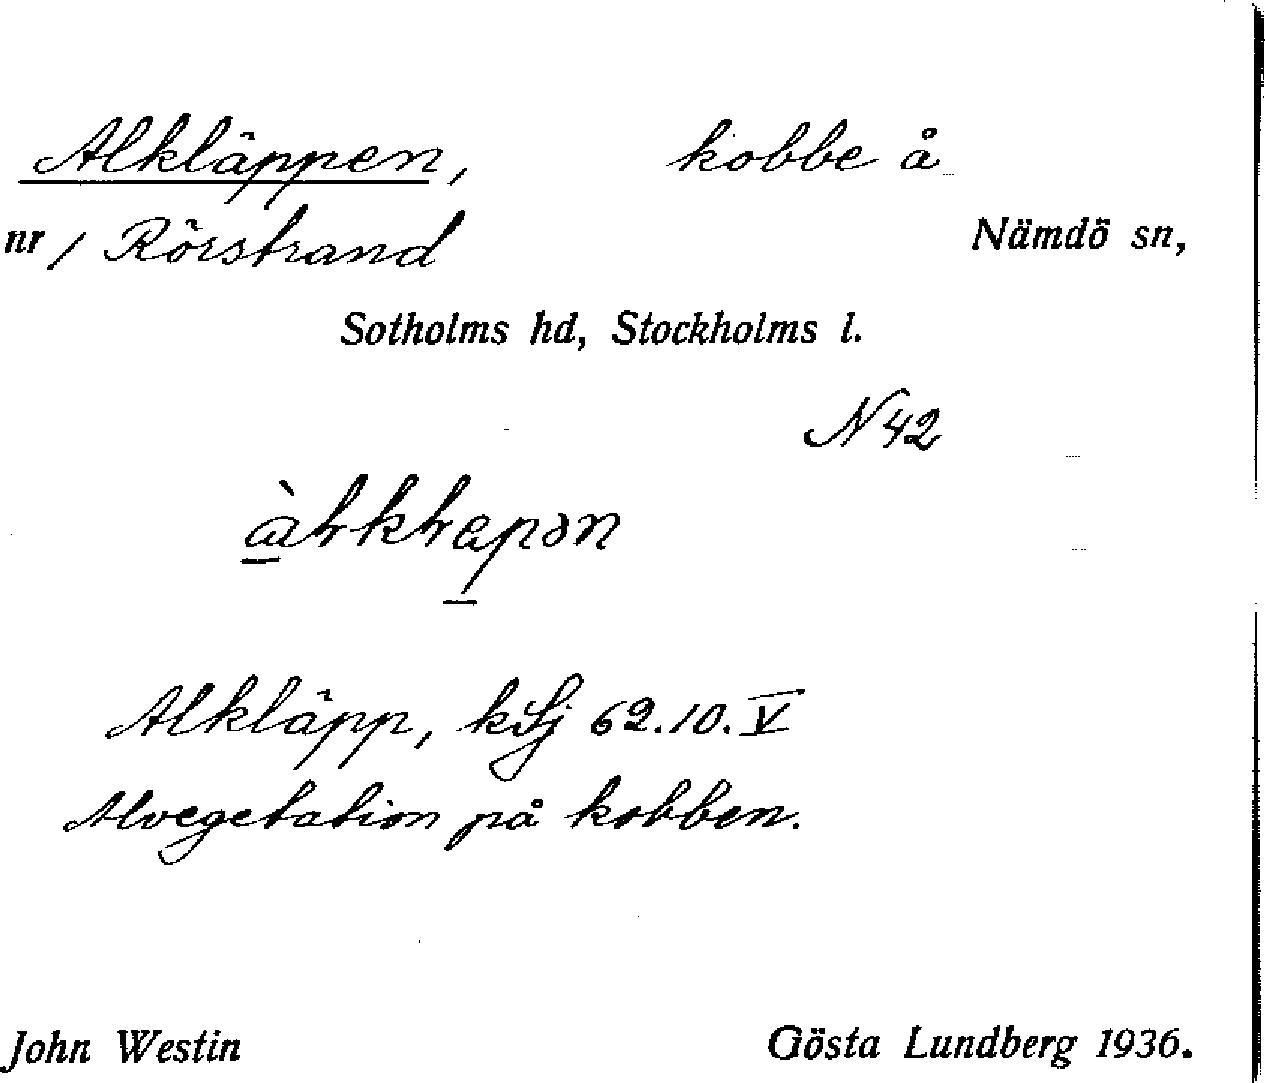 Alkläppen, kobbe å
nr 1 Rörstrand Nämdö sn,
Sotholms hd, Stockholms l.
N 42
Alkläpp, kSj 62.10.V
Alvegetation på kobben.
John Westin Gösta Lundberg 1936.